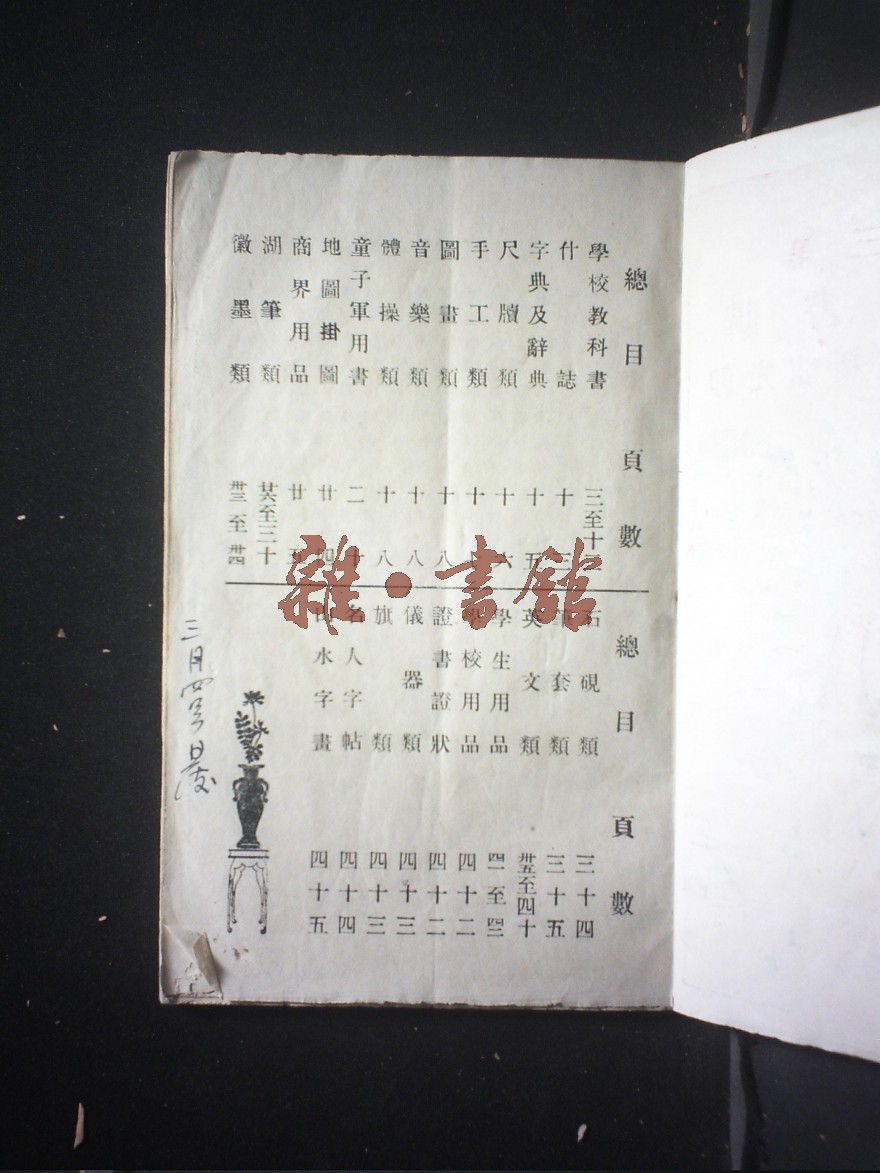 總目 頁數
學校教科書 三至十三
什誌 十三
字典及辭典 十五
尺牘類 十六
手工類 十
圖畫類 十八
音樂類 十八
體操類 十八
童子軍用書 二十
地圖掛圖 廿四
商界用品 廿五
湖筆類 廿六至三十
徽墨類 卅三至卅四
總目 頁數
石硯類 三十四
筆套類 三十五
英文類 卅五至四十
學生用品 四一至四二
學校用品 四十二
證書證狀 四十二
儀器類 四十三
旗類 四十三
名人字帖 四十四
山水字畫 四十五
三月四号
雜·書館